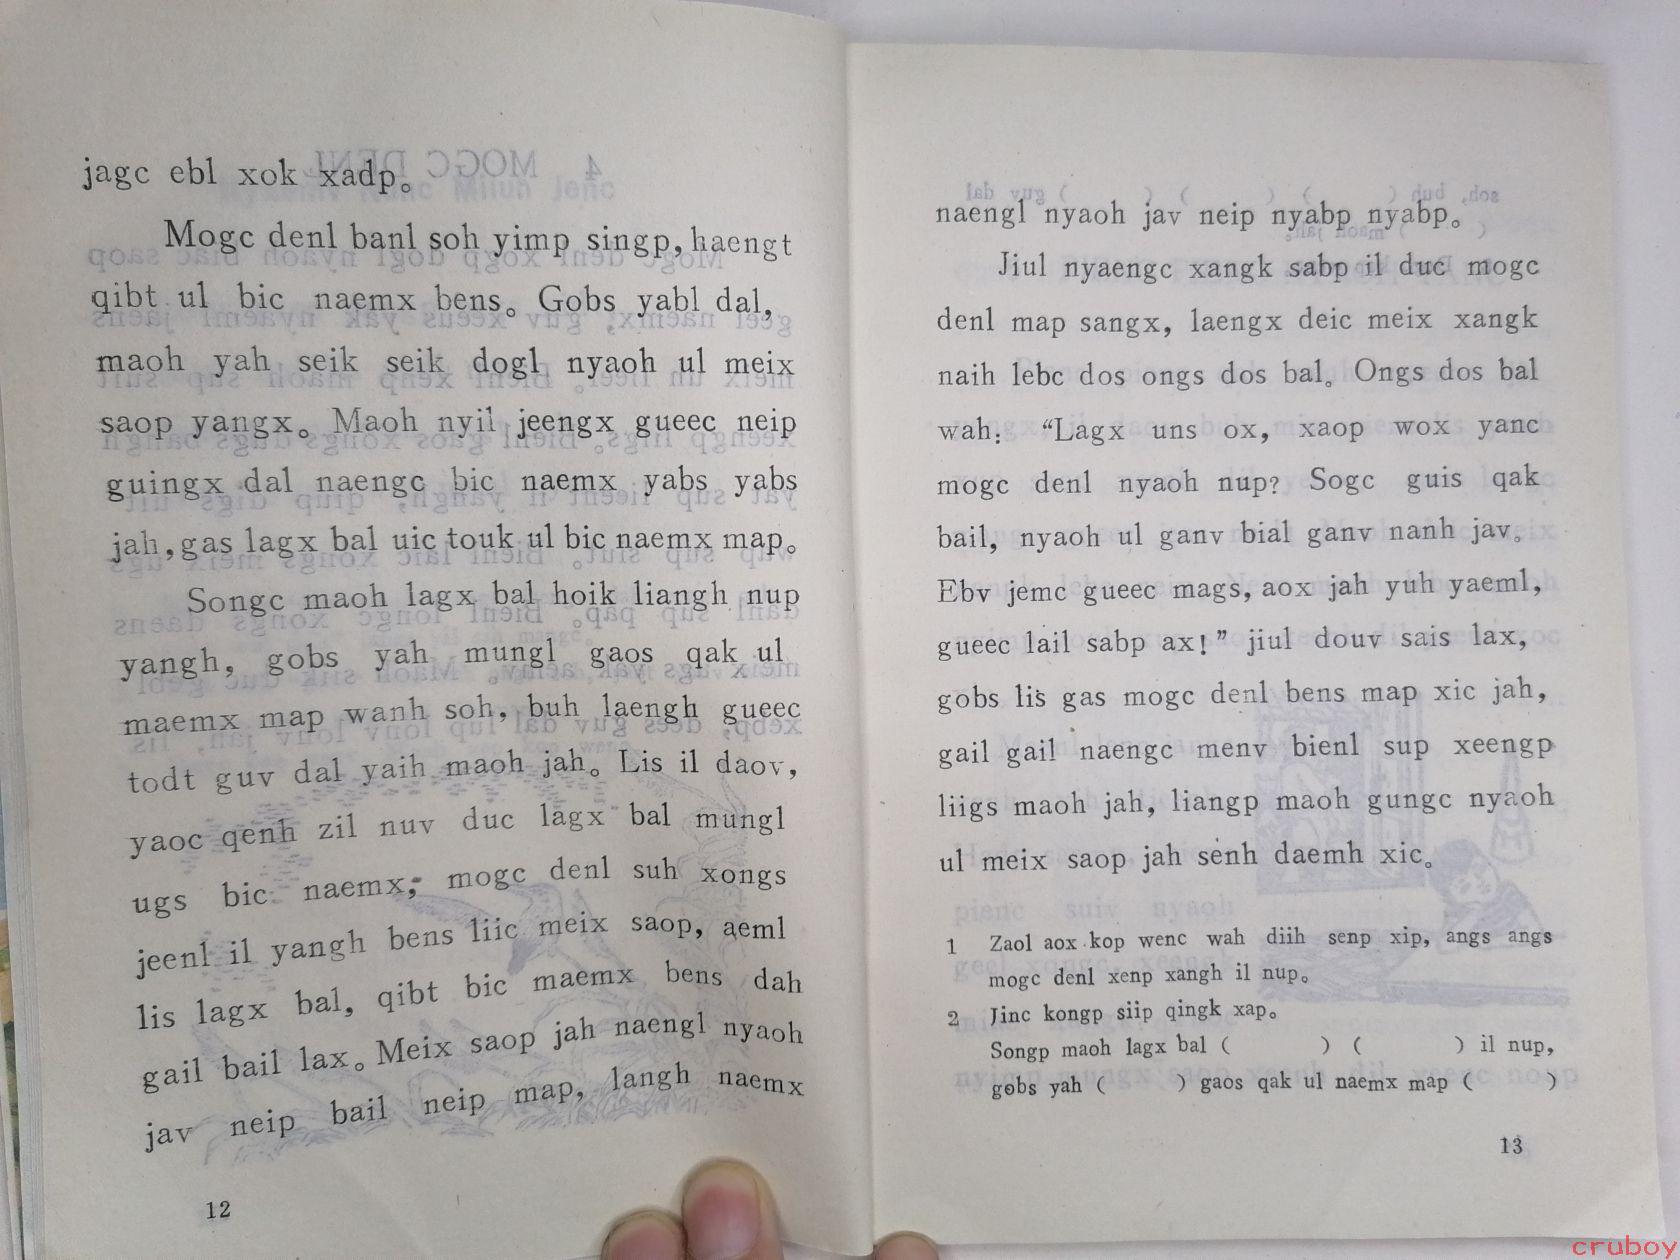 jagc ebl xok xadp。
Mogc denl banl soh yimp singp, haengt
qibt ul bic naemx bens。 Gobs yabl dal,
maoh yah seik seik dogl nyaoh ul meix
saop yangx。 Maoh nyil jeengx gueec neip
guingx dal naengc bic naemx yabs yabs
jah, gas lagx bal uic touk ul bic naemx map。
Songc maoh lagx bal hoik liangh nup
yangh, gobs yah mungl gaos qak ul
maemx map wanh soh, buh laengh gueec
todt guv dal yaih maoh jah。 Lis il daov,
yaoc qenh zil nuv duc lagx bal mungl
ugs bic naemx, mogc denl suh xongs
jeenl il yangh bens liic meix saop, aeml
lis lagx bal, qibt bic maemx bens dah
gail bail lax。 Meix saop jah naengl nyaoh
jav neip bail neip map, langh naemx
12
naengl nyaoh jav neip nyabp nyabp。
Jiul nyaengc xangk sabp il duc mogc
denl map sangx, laengx deic meix xangk
naih lebc dos ongs dos bal。 Ongs dos bal
wah: “Lagx uns ox, xaop wox yanc
mogc denl nyaoh nup? Sogc guis qak
bail, nyaoh ul ganv bial ganv nanh jav。
Ebv jemc gueec mags, aox jah yuh yaeml,
gueec lail sabp ax!” jiul douv sais lax,
gobs lis gas mogc denl bens map xic jah,
gail gail naengc menv bienl sup xeengp
liigs maoh jah, liangp maoh gungc nyaoh
ul meix saop jah senh daemh xic。
1 Zaol aox kop wenc wah diih senp xip, angs angs
mogc denl xenp xangh il nup。
2 Jinc kongp siip qingk xap。
Songp maoh lagx bal ( ) ( ) il nup,
gobs yah ( ) gaos qak ul naemx map ( )
13
cruboy